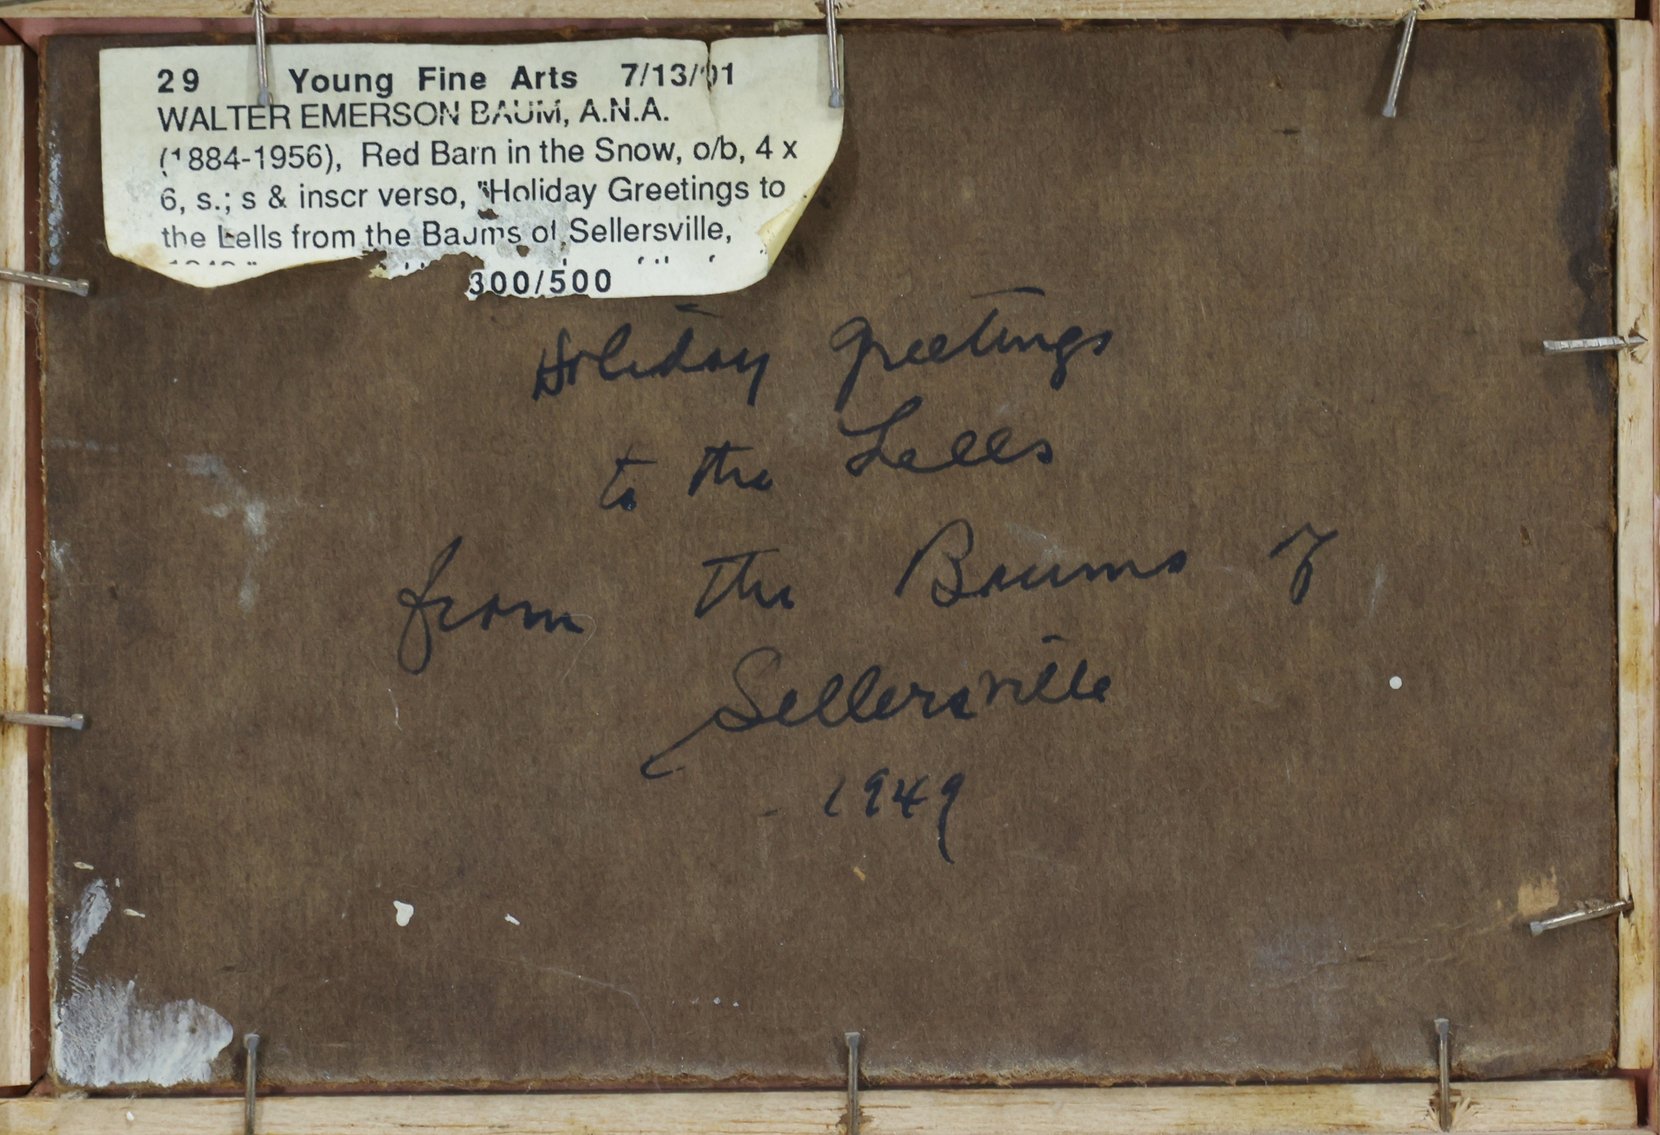 29 Young Fine Arts 7/13/91
WALTER EMERSON BAUM, A.N.A.
(1884-1956), Red Barn in the Snow, o/b, 4 x
6, s.; s & inscr verso, "Holiday Greetings to
the Lells from the Baums of Sellersville,
300/500
Holiday Greetings
to the Lells
from the Baums of
Sellersville
- 1949